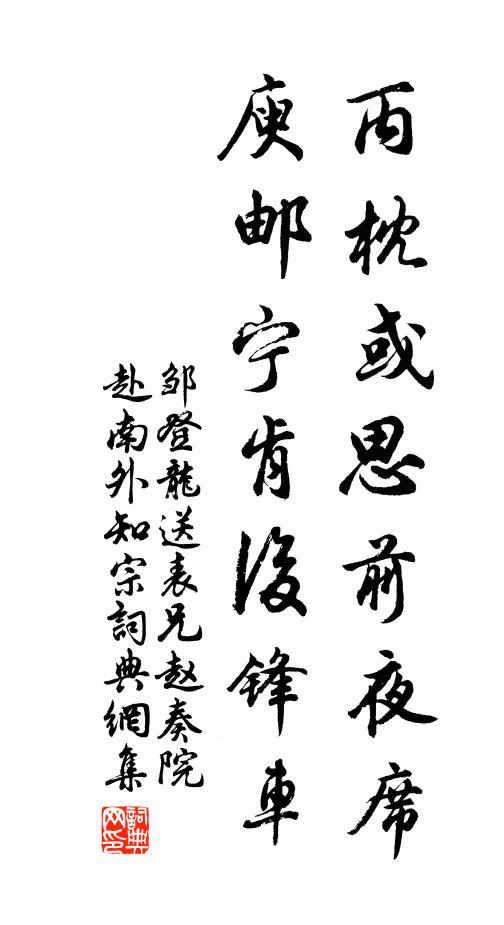 丙枕或思前夜席
庾邮宁肯後锋車
邹登龍送表兄赵奏院
赴南外知宗詞典網集
詞典网印